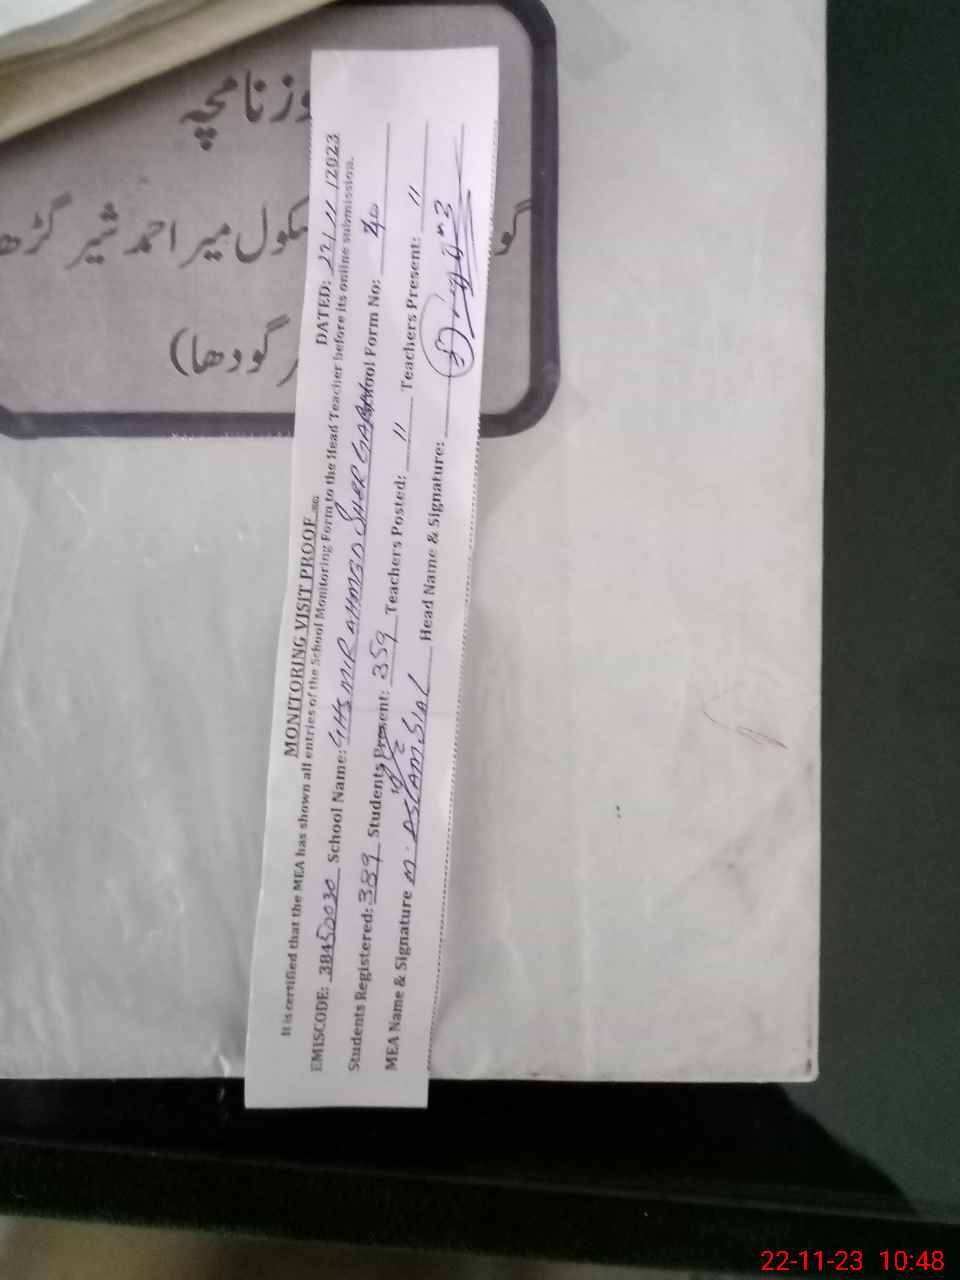 وزنامچہ
سکول میر احمد شیر گڑھ
گودھا)
MONITORING VISIT PROOF
DATED: 22/11/2023
It is certified that the MEA has shown all entries of the School Monitoring Form to the Head Teacher before its online submission.
EMISCODE: 38450030 School Name: GHS MIR AHMED SHER GARH School Form No: 40
Students Registered: 389 Students Present: 359 Teachers Posted: 11 Teachers Present: 11
MEA Name & Signature M. ASLAM SIAL Head Name & Signature:
22-11-23 10:48